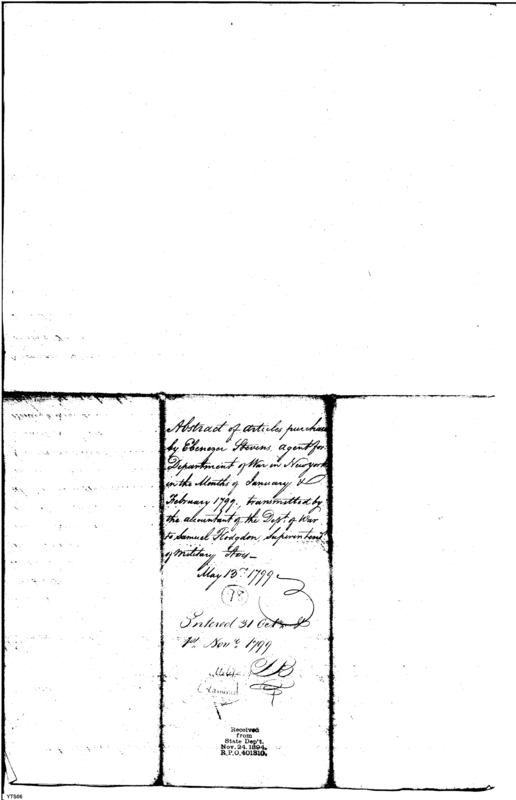 Abstract of articles purchased
by Ebenezer Stevens, agent for
Department of War in New york
in the Months of January &
February 1799, transmitted by
the accountant of the Dept. of War
to Samuel Hodgdon, Superintend
of Military Stores
May 13th 1799
98
Entered 31 Octr &
1st Novr 1799
Examined
Received
from
State Dep't.
Nov. 24, 1894.
R.P.O. 401310.
Y7S06